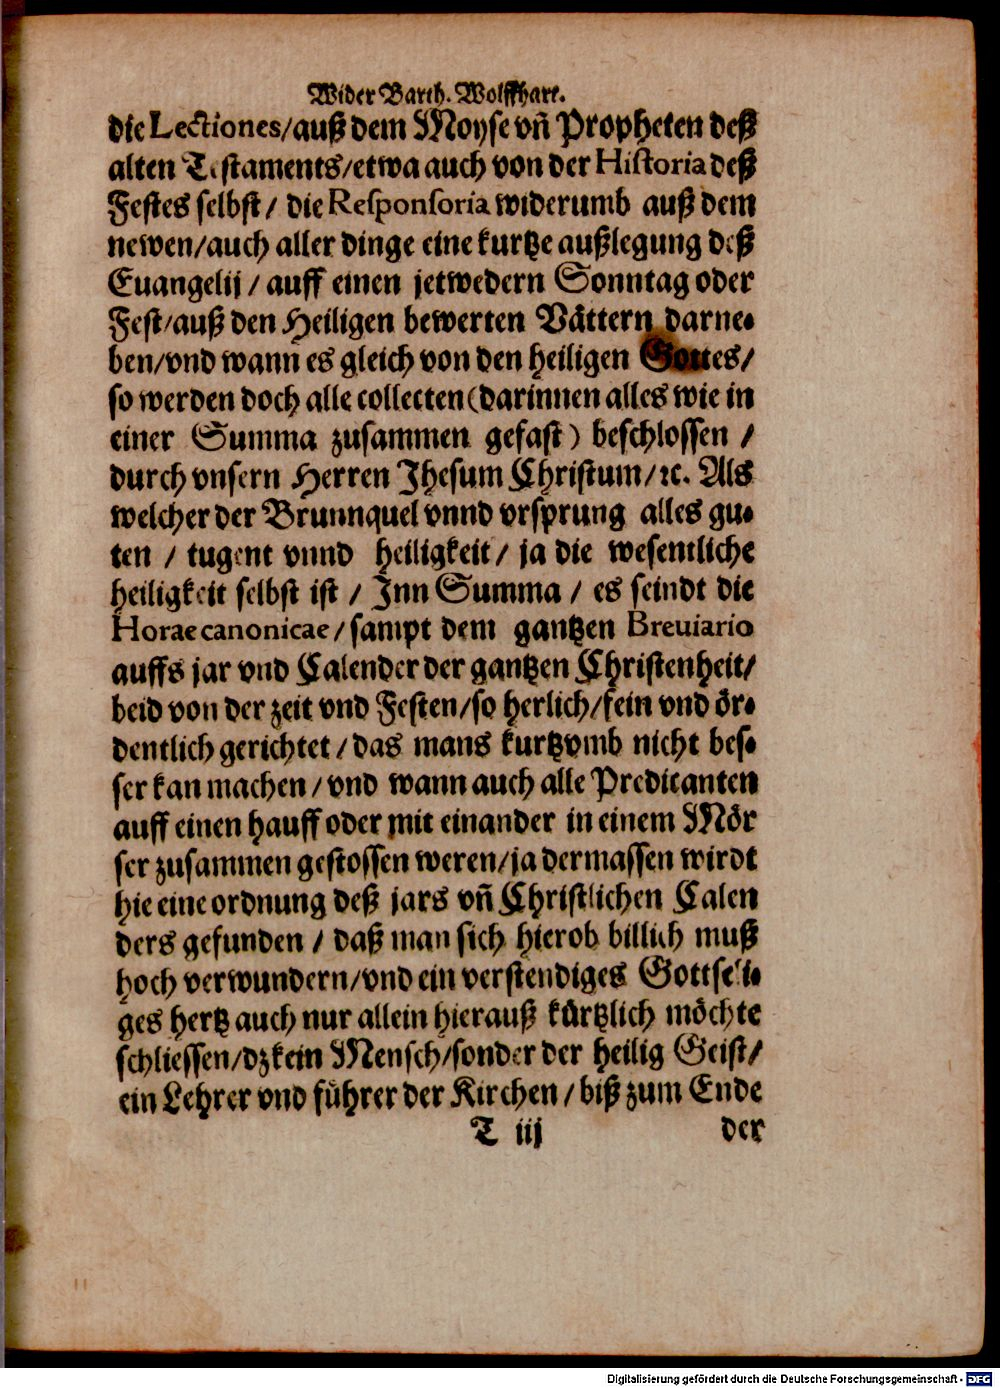 Wider Barth. Wolffhart.
die Lectiones/auß dem Moyse vñ Propheten deß
alten Testaments/etwa auch von der Historia deß
Festes selbst/ die Responsoria widerumb auß dem
newen/auch aller dinge eine kurtze außlegung deß
Euangelij/ auff einen jetwedern Sonntag oder
Fest/auß den Heiligen bewerten Vättern darne-
ben/vnd wann es gleich von den heiligen Gottes/
so werden doch alle collecten (darinnen alles wie in
einer Summa zusammen gefast) beschlossen /
durch vnsern Herren Jhesum Christum/ꝛc. Als
welcher der Brunnquel vnnd vrsprung alles gu-
ten / tugent vnnd heiligkeit/ ja die wesentliche
heiligkeit selbst ist / Inn Summa / es seindt die
Horae canonicae/ sampt dem gantzen Breuiario
auffs jar vnd Calender der gantzen Christenheit/
beid von der zeit vnd Festen/so herlich/fein vnd ör-
dentlich gerichtet/das mans kurtzvmb nicht bes-
ser kan machen/vnd wann auch alle Predicanten
auff einen hauff oder mit einander in einem Mör
ser zusammen gestossen weren/ja dermassen wirdt
hie eine ordnung deß jars vñ Christlichen Calen
ders gefunden / daß man sich hierob billich muß
hoch verwundern/vnd ein verstendiges Gottseli-
ges hertz auch nur allein hierauß kürtzlich möchte
schliessen/dz kein Mensch/sonder der heilig Geist/
ein Lehrer vnd führer der Kirchen/biß zum Ende
T iij der
Digitalisierung gefördert durch die Deutsche Forschungsgemeinschaft - DFG